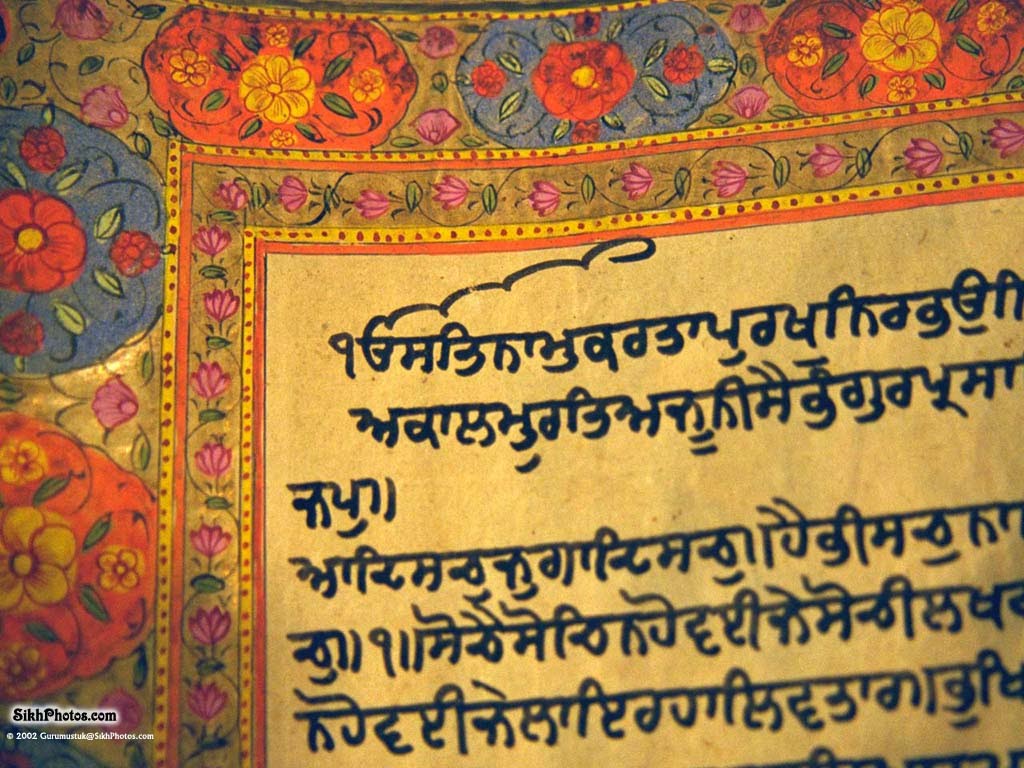 ੴਸਤਿਨਾਮੁਕਰਤਾਪੁਰਖੁਨਿਰਭਉ
ਅਕਾਲਮੂਰਤਿਅਜੂਨੀਸੈਭੰਗੁਰਪ੍ਰਸਾ
ਜਪੁ॥
ਆਦਿਸਚੁਜੁਗਾਦਿਸਚੁ॥ਹੈਭੀਸਚੁਨਾ
ਚੁ॥੧॥ਸੋਚੈਸੋਚਿਨਹੋਵਈਜੇਸੋਚੀਲਖ
ਨਹੋਵਈਜੇਲਾਇਰਹਾਲਿਵਤਾਰ॥ਭੁਖਿ
SikhPhotos.com
© 2002 Gurumustuk@SikhPhotos.com